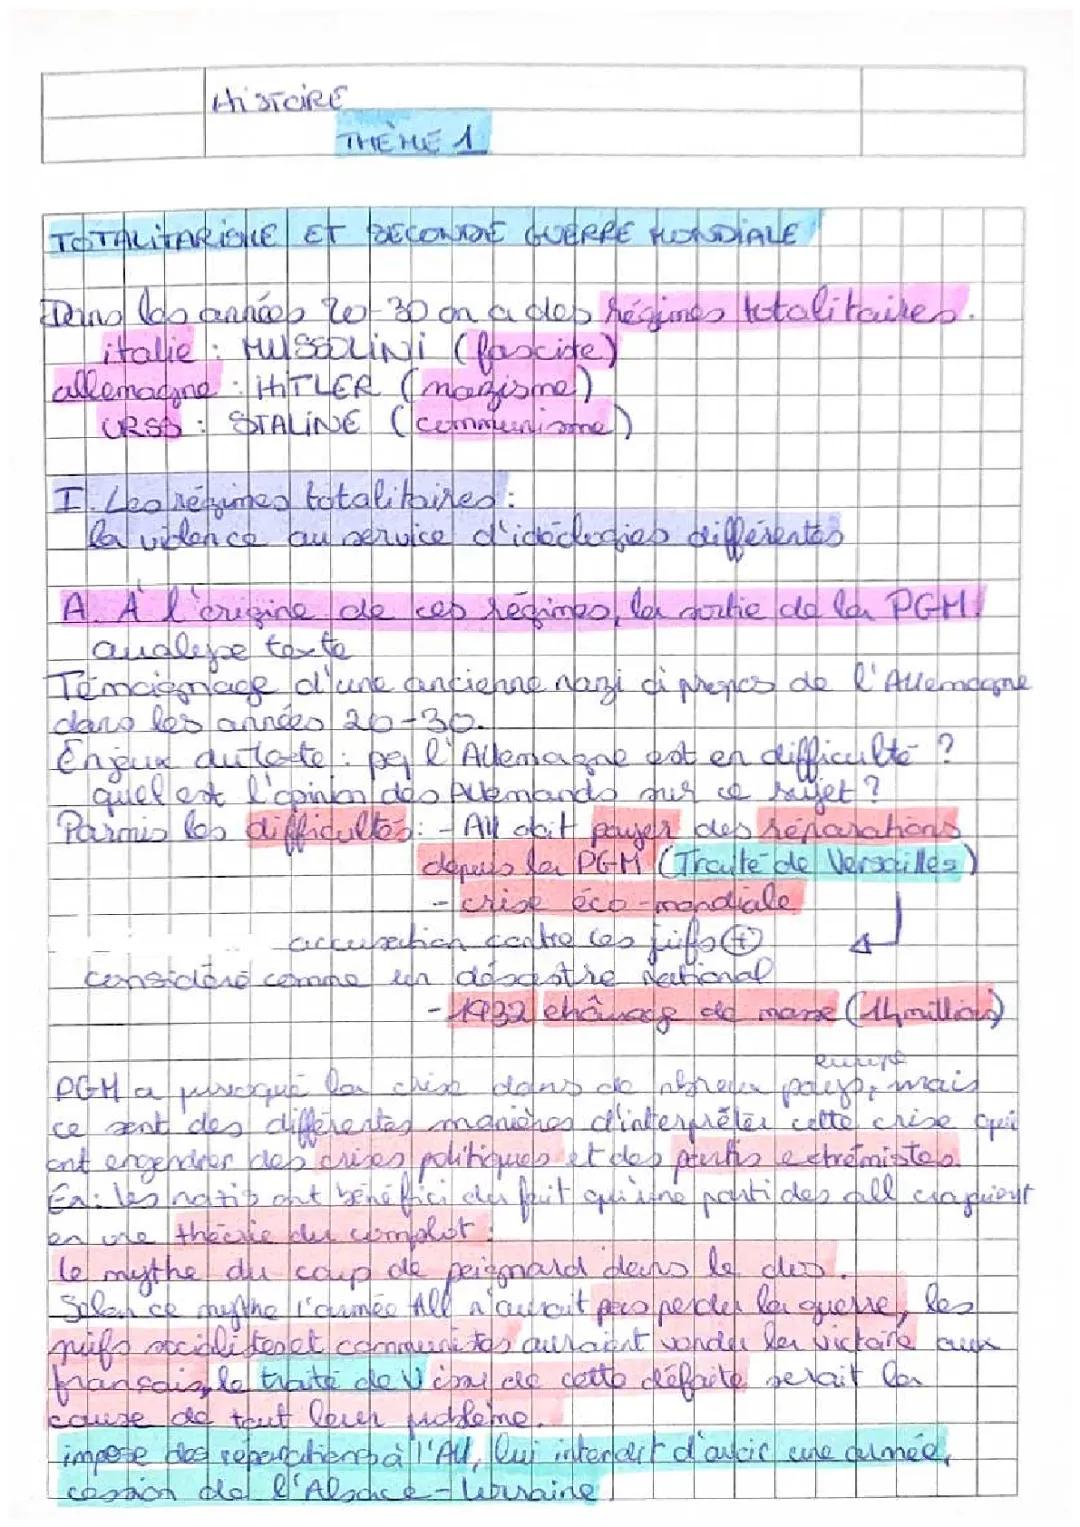 HISTOIRE
THÈME 1
TOTALITARISME ET SECONDE GUERRE MONDIALE
Dans les années 20-30 on a des régimes totalitaires.
italie : MUSSOLINI (fasciste)
allemagne : HITLER (nazisme)
URSS : STALINE (communisme)
I. Les régimes totalitaires :
la violence au service d'idéologies différentes
A. À l'origine de ces régimes, la sortie de la PGM.
analyse texte
Témoignage d'une ancienne nazi à propos de l'Allemagne
dans les années 20-30.
Enjeux du texte : pq l'Allemagne est en difficulté ?
quel est l'opinion des Allemands sur ce sujet ?
Parmis les difficultés : - All doit payer des réparations
depuis la PGM (Traité de Versailles)
- crise éco-mondiale
accusation contre les juifs (+)
considéré comme un désastre national
- 1932 chômage de masse (14 million)
europe
PGM a provoqué la crise dans de nbreux pays, mais
ce sont des différentes manières d'interpréter cette crise qui
ont engendrer des crises politiques et des partis extrémistes.
Ex : les nazis ont bénéfici du fait qu'une parti des all craquient
en une théorie du complot :
le mythe du coup de poignard dans le dos.
Selon ce mythe l'armée All n'aurait pas perdu la guerre, les
juifs socialistes et communistes auraient vendu la victoire aux
français, le traité de V issu de cette défaite serait la
cause de tout leur problème.
impose des réparations à l'All, lui interdit d'avoir une armée,
cession de l'Alsace-Lorraine